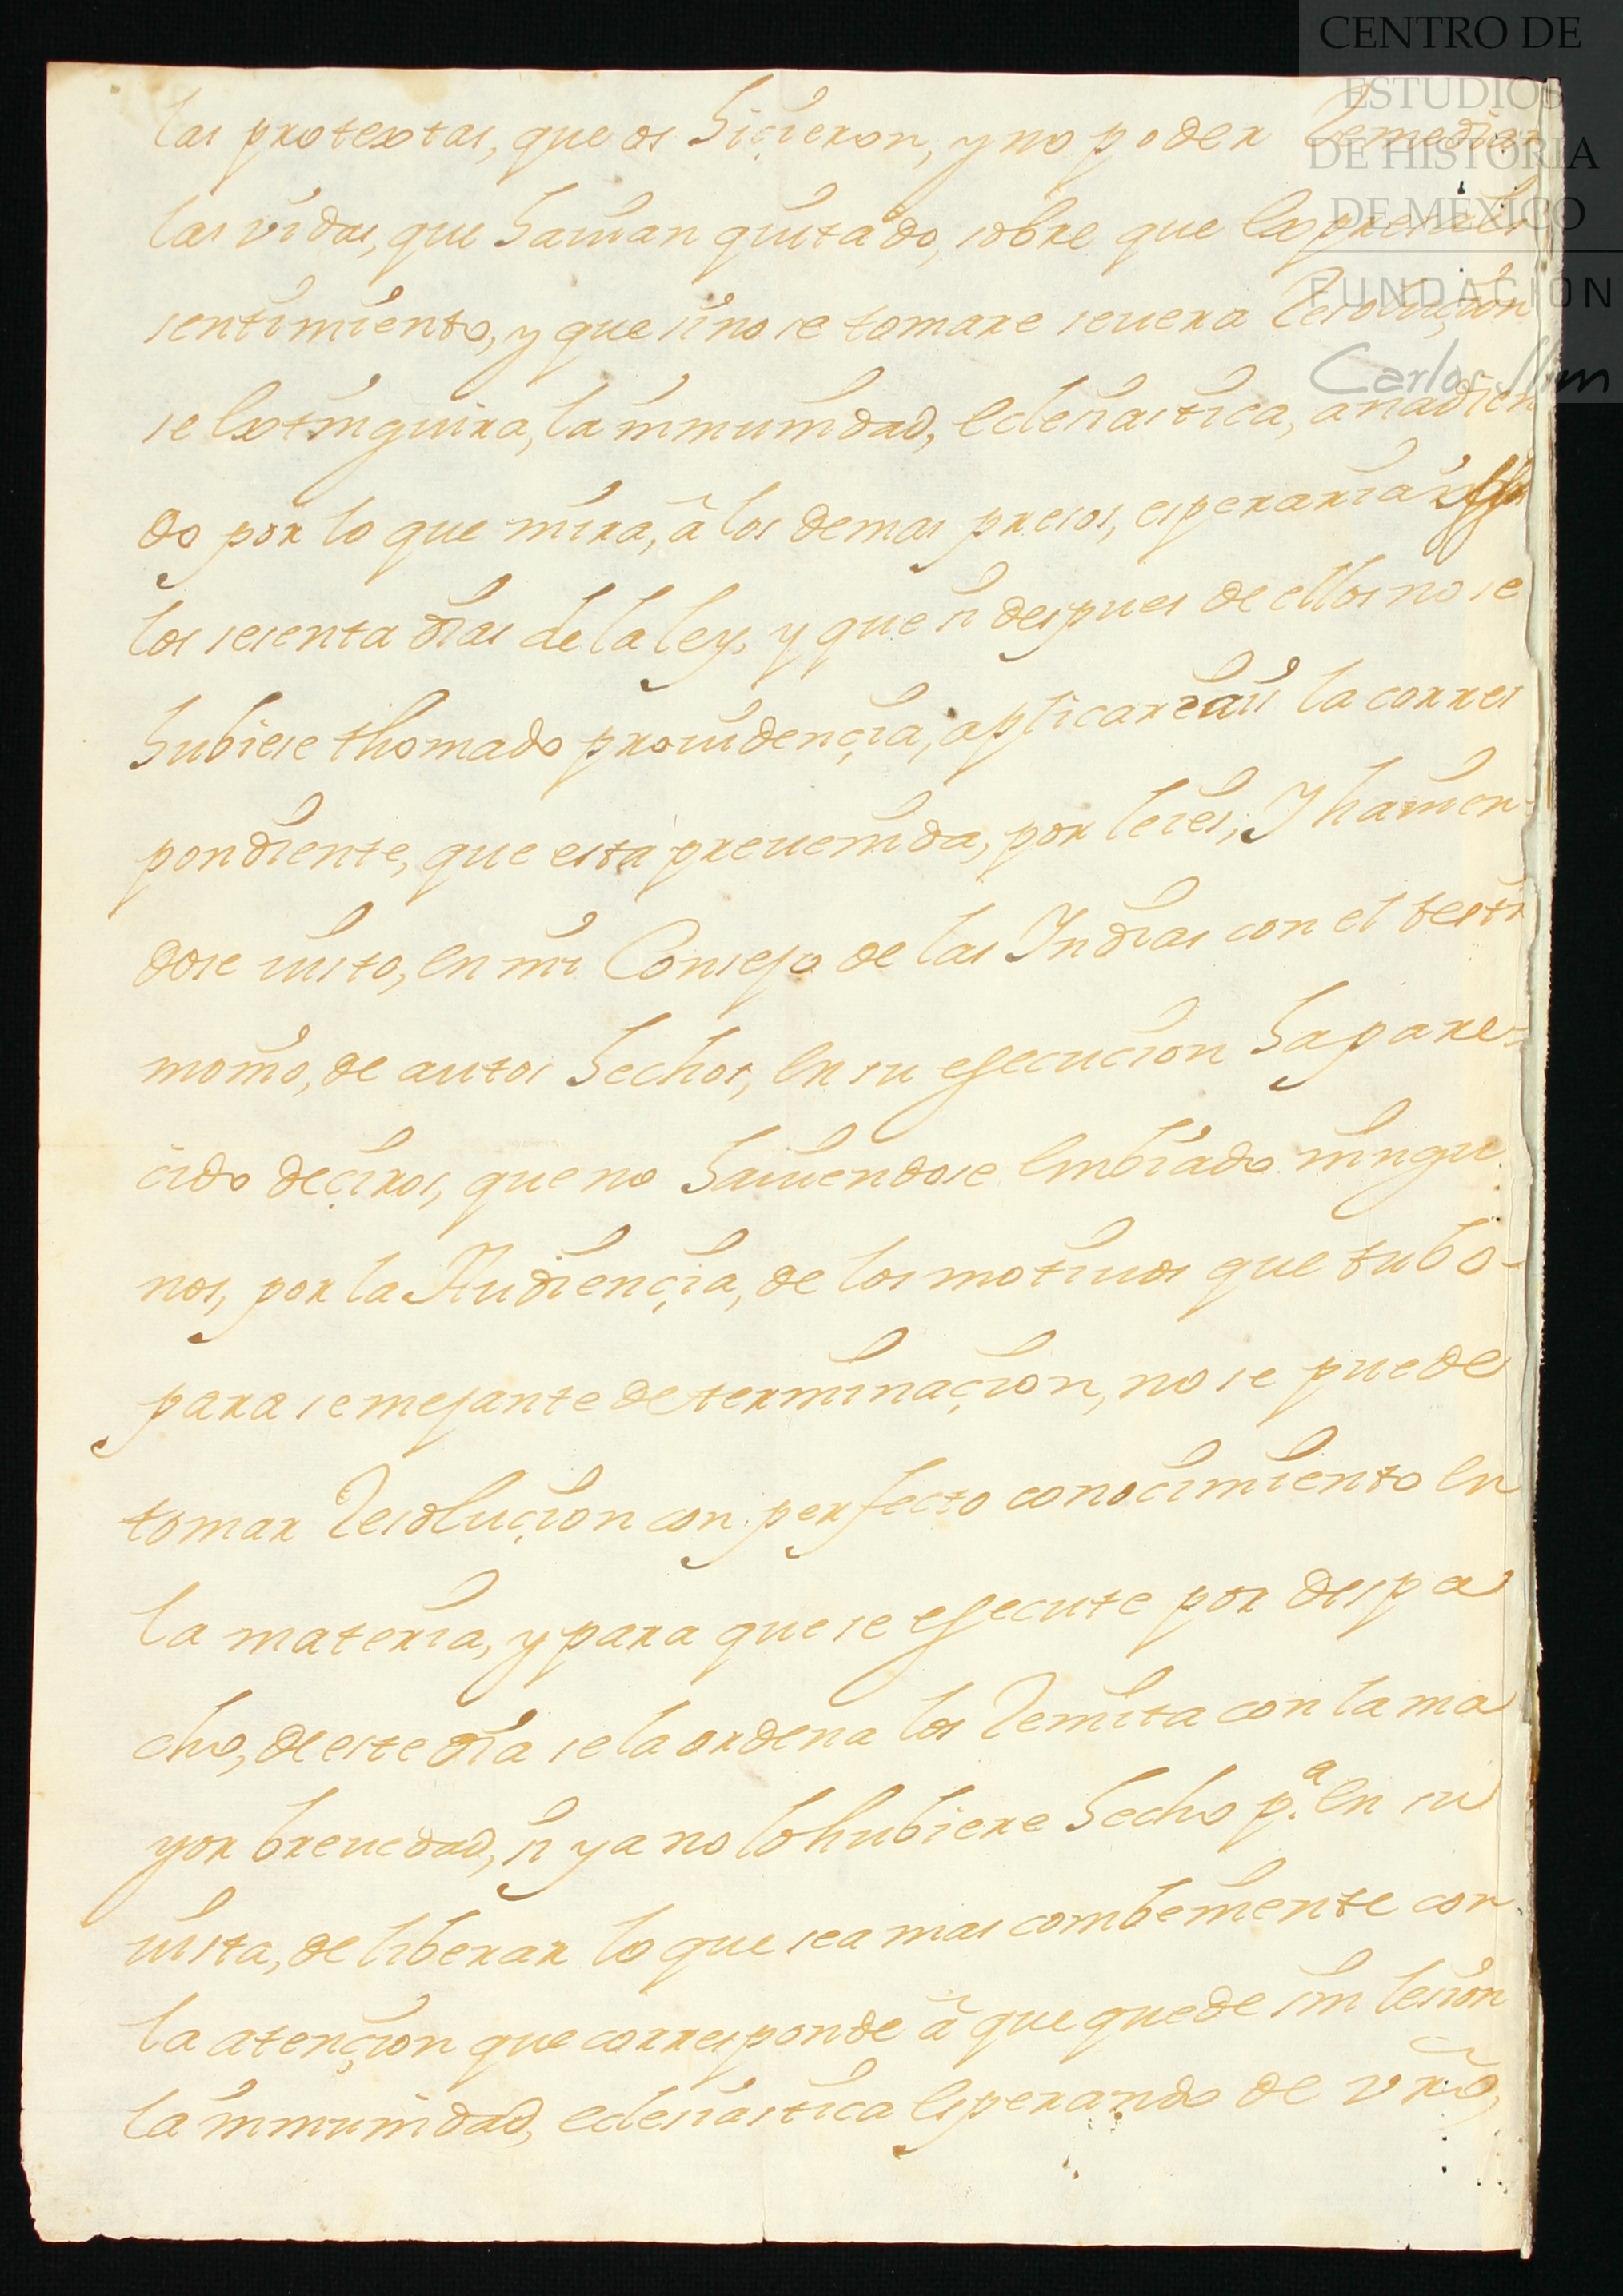 las protextas, que os hiçieron, y no poder Remediar
las vidas, que hauian quitado, sobre que expresais
sentimiento, y que si no se tomare seuera Resoluçion
se extinguira, la immunidad, eclesiastica, añadien
do por lo que mira, â los demas presos, esperariais
los sesenta dias de la ley, y que si despues de ellos no se
hubiese thomado prouidençia, aplicareais la corres
pondiente, que esta preuenida, por leies, Y hauien-
dose uisto, en mi Consejo de las Indias con el testi
monio, de autos hechos, en su ejecucion ha pare-
cido deçiros, que no hauiendose embiado ningu
nos, por la Audiençia, de los motiuos que tubo-
para semejante determinaçion, no se puede
tomar Resoluçion con perfecto conocimiento en
la materia, y para que se ejecute por despa
cho, de este dia se la ordena los Remita con la ma
yor breuedad, si ya no lo hubiere hecho p.ª en su
uista, deliberar lo que sea mas combeniente con
la atençion que corresponde â que quede sin lesion
la immunidad, eclesiastica esperando de vrõ,
CENTRO DE
ESTUDIOS
DE HISTORIA
DE MÉXICO
FUNDACIÓN
Carlos Slim